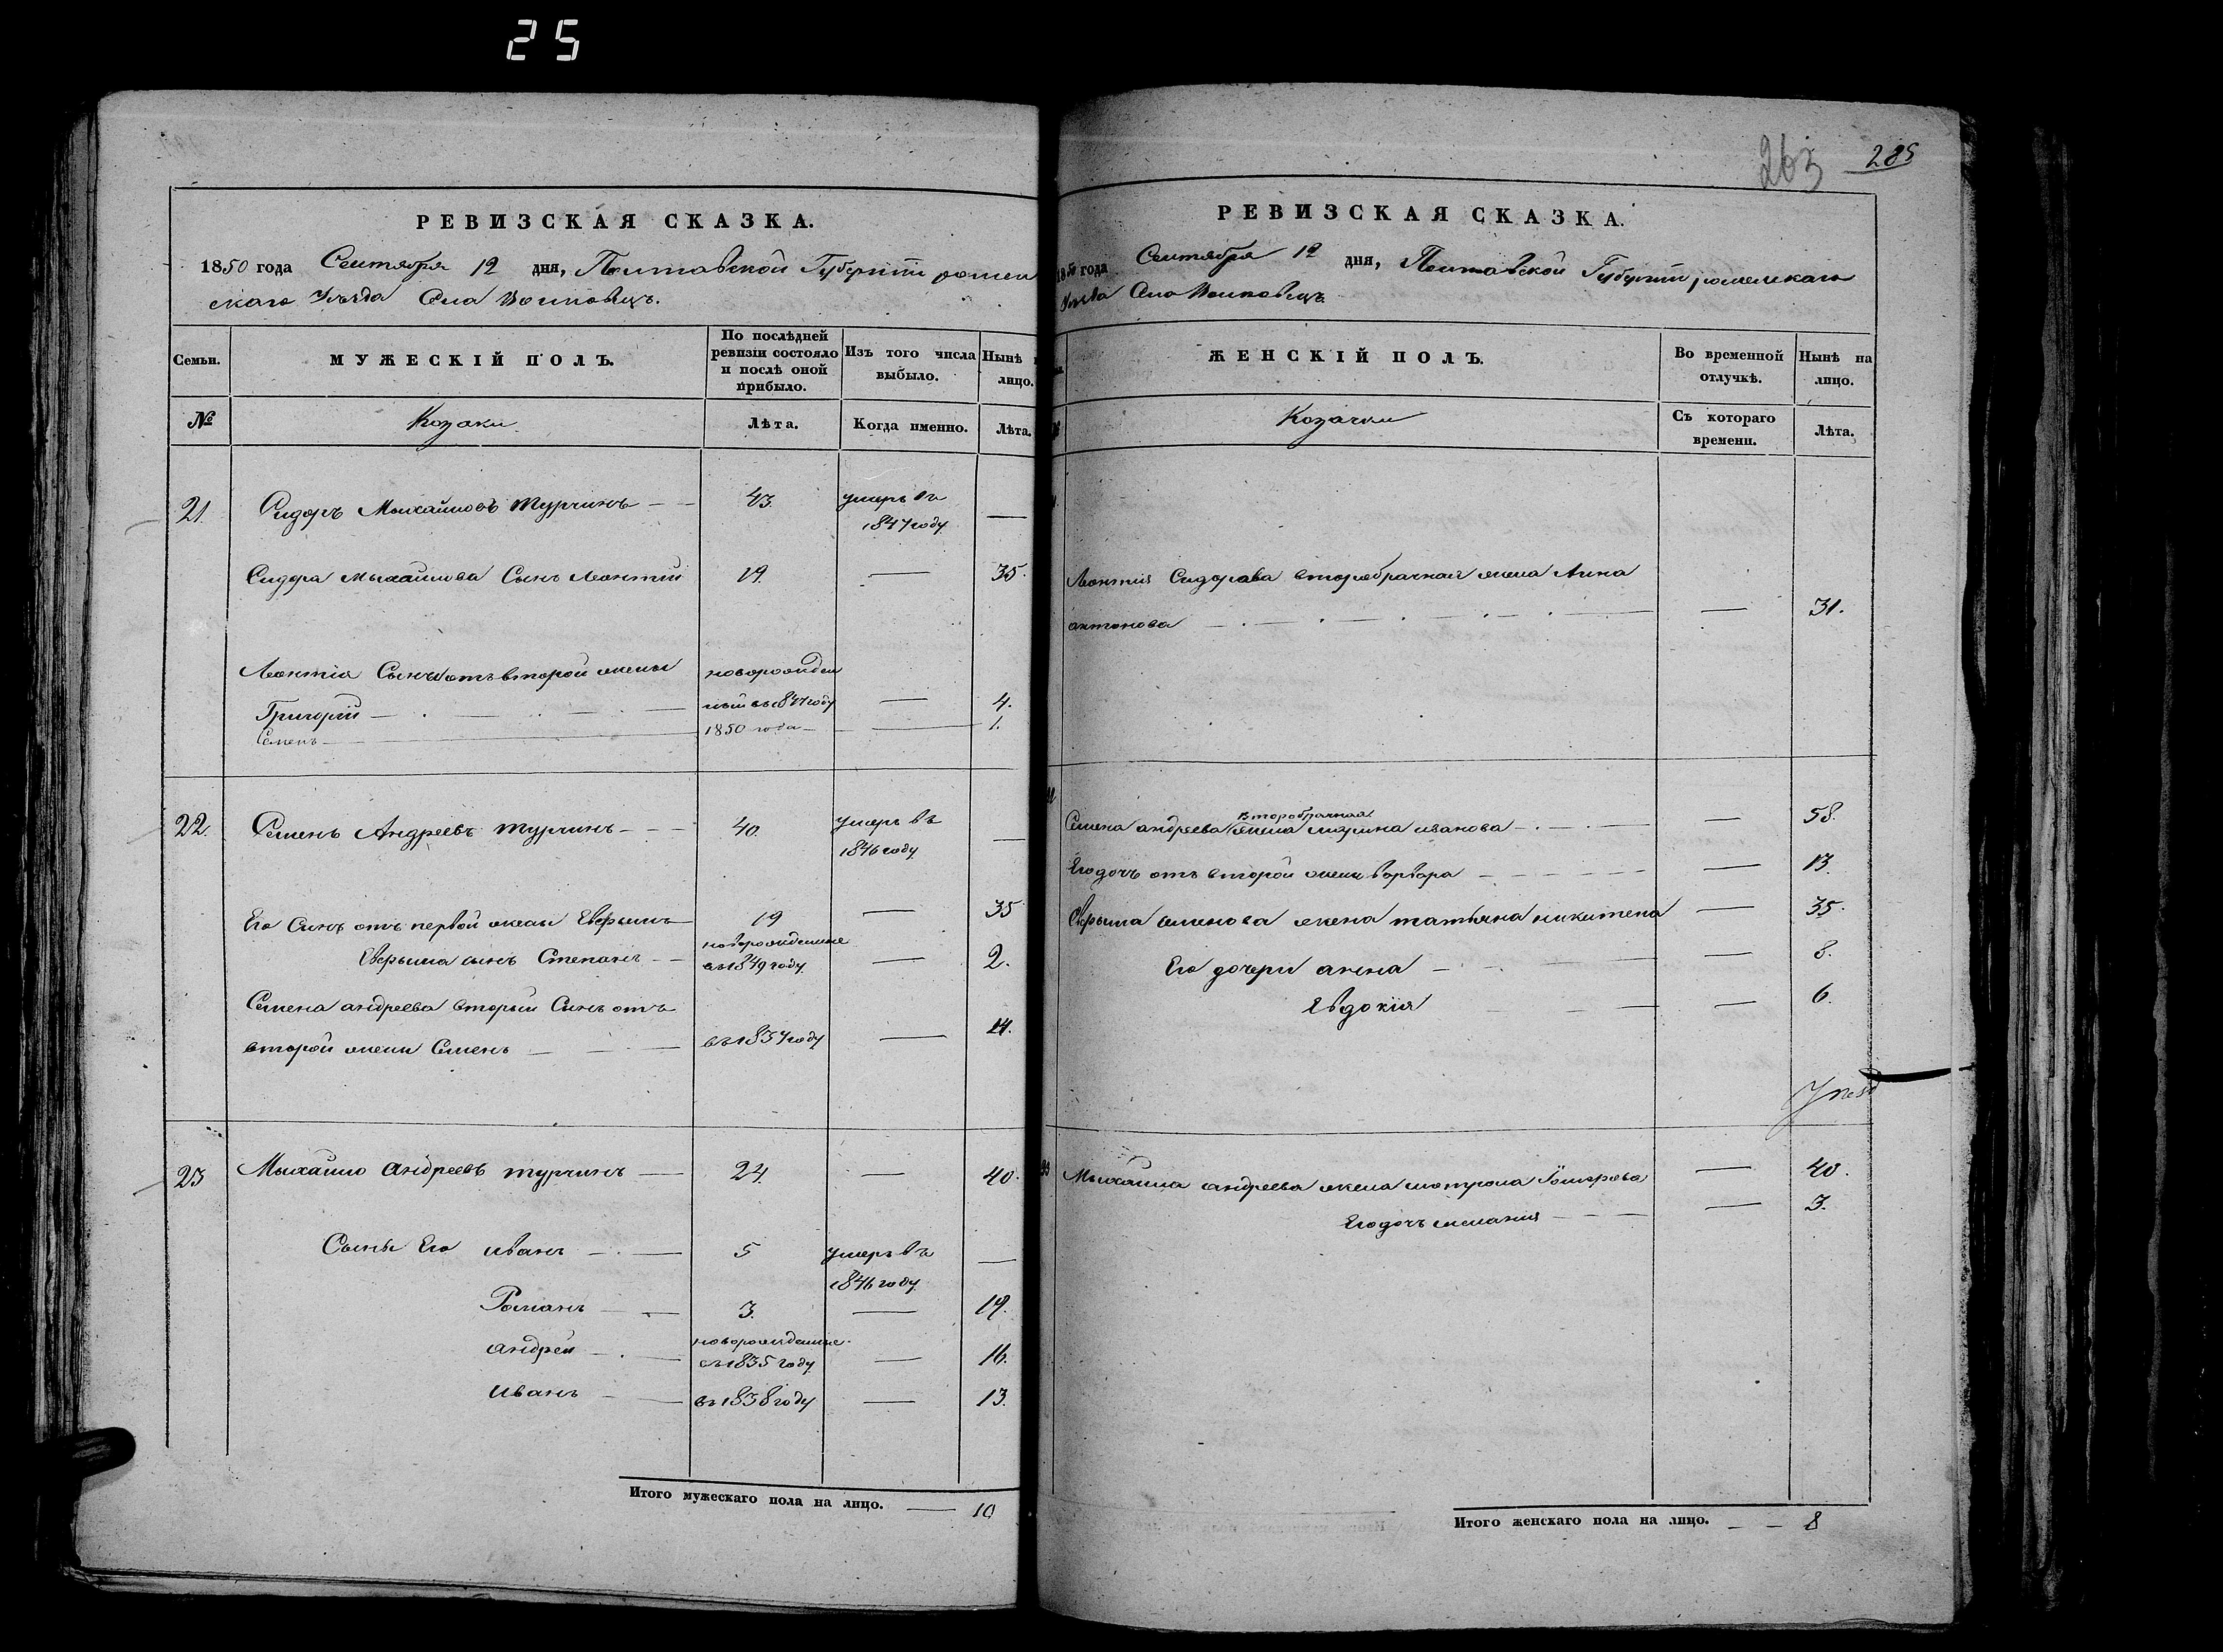 25
РЕВИЗСКАЯ СКАЗКА.
1850 года Сентября 12 дня, Полтавской Губернiи ромен
скаго Уезда Села Волковецъ.
Семьи.
МУЖЕСКІЙ ПОЛЪ.
По послѣдней ревизіи состояло и послѣ оной прибыло.
Изъ того числа выбыло.
Нынѣ лицо.
№
Козаки
Лѣта.
Когда именно.
Лѣта.
21 Сидоръ Михайловъ Турчинъ 43. умеръ въ
1847 году
Сидора Михайлова Сынъ Леонтiй 19. 35.
Леонтiя Сыны отъ второй жены новорожден
Григорiй ный въ 1847 году 4.
Семенъ 1850 года 1.
22. Семенъ Андреевъ Турчинъ 40. умеръ въ
1846 году
Его Сынъ отъ первой жены Евфимъ 19 35
новорожденные
Евфыма сынъ Степанъ въ 1849 году 2.
Семена андреева вторый Сынъ отъ
второй жены Семенъ въ 1837 году 14.
23 Михайло андреевъ турчинъ 24. 40.
Сыны Его иванъ 5 умеръ въ
1846 году
Романъ 3. 19.
новорожденные
андрей въ 1835 году 16.
иванъ въ 1838 году 13.
Итого мужескаго пола на лицо. 10
263 285
РЕВИЗСКАЯ СКАЗКА.
1850 года Сентября 12 дня, Полтавской Губернiи роменскаго
Уезда Села Волковецъ
ЖЕНСКІЙ ПОЛЪ.
Во временной отлучкѣ.
Нынѣ на лицо.
Козачки
Съ котораго времени.
Лѣта.
Леонтiя Сидорова второбрачная жена Анна
антонова 31.
второбрачная
Семена андреева жена марина иванова 58.
Его дочь отъ второй жены варвара 13.
Евфыма семенова жена татьяна никитена 35.
Его дочери анна 8.
Евдокiя 6.
Михайла андреева жена мотрона 40.
Его дочь 3.
Итого женскаго пола на лицо. 8